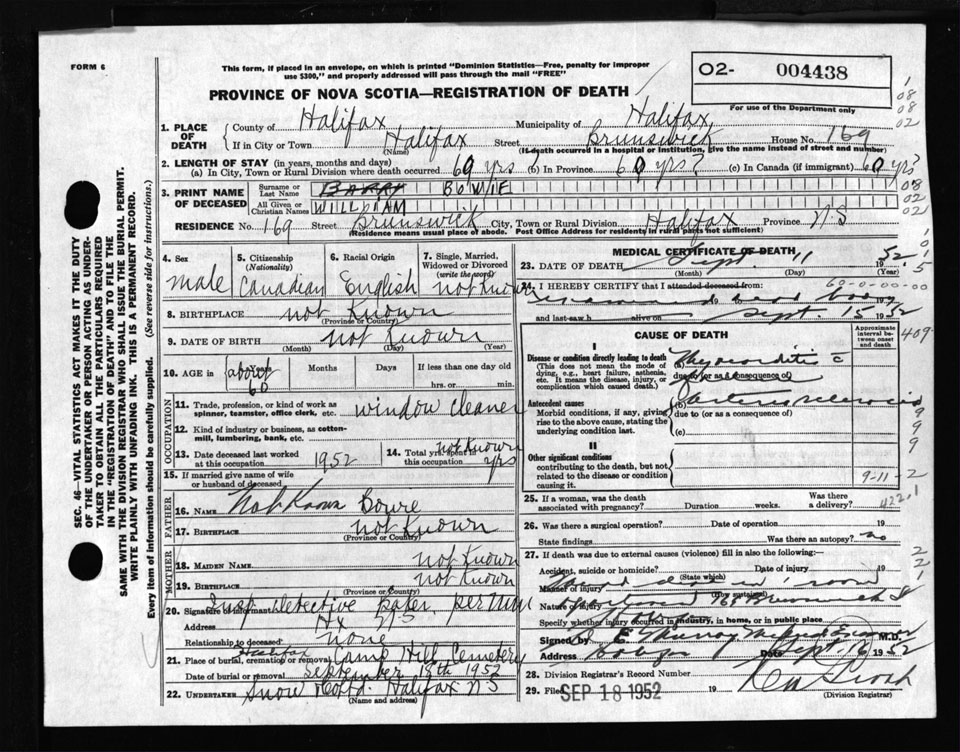 FORM 6
This form, if placed in an envelope, on which is printed "Dominion Statistics—Free, penalty for improper
use $300," and properly addressed will pass through the mail "FREE"
O2- 004438
PROVINCE OF NOVA SCOTIA—REGISTRATION OF DEATH
For use of the Department only
1. PLACE OF DEATH
County of Halifax Municipality of Halifax
If in City or Town Halifax Street Brunswick House No. 169
(Name) (If death occurred in a hospital or institution, give the name instead of street and number)
2. LENGTH OF STAY (in years, months and days)
(a) In City, Town or Rural Division where death occurred 60 yrs? (b) In Province 60 yrs? (c) In Canada (if immigrant) 60 yrs?
3. PRINT NAME OF DECEASED
Surname or Last Name BARRY BOWIE
All Given or Christian Names WILLIAM
RESIDENCE No. 169 Street Brunswick City, Town or Rural Division Halifax Province N.S
(Residence means usual place of abode. Post Office Address for residents in rural parts not sufficient)
4. Sex
male
5. Citizenship (Nationality)
Canadian
6. Racial Origin
English
7. Single, Married, Widowed or Divorced (write the word)
not Known
8. BIRTHPLACE not Known
(Province or Country)
9. DATE OF BIRTH not Known
(Month) (Day) (Year)
10. AGE in about 60
Months Days If less than one day old
hrs. or min.
OCCUPATION
11. Trade, profession, or kind of work as spinner, teamster, office clerk, etc. window cleaner
12. Kind of industry or business, as cotton-mill, lumbering, bank, etc.
13. Date deceased last worked at this occupation 1952
14. Total yrs. spent in this occupation not Known yrs
15. If married give name of wife or husband of deceased
FATHER
16. Name Not Known Bowie
17. Birthplace not Known
(Province or Country)
MOTHER
18. Maiden Name not Known
19. Birthplace not Known
(Province or Country)
20. Signature of informant Insp Detective
Address Hx N.S
Relationship to deceased none
21. Place of burial, cremation or removal Halifax Camp Hill Cemetery
Date of burial or removal September 18th 1952
22. UNDERTAKER Snow Halifax N.S
(Name and address)
MEDICAL CERTIFICATE OF DEATH
23. DATE OF DEATH Sept. 11 1952
(Month) (Day) (Year)
24. I HEREBY CERTIFY that I attended deceased from:
60-0-00-00
examined dead body 19
and last saw h alive on Sept. 15 1952
CAUSE OF DEATH
Approximate interval between onset and death
I
Disease or condition directly leading to death
(This does not mean the mode of dying, e.g., heart failure, asthenia, etc. It means the disease, injury, or complication which caused death.)
(a) Myocarditis c
due to (or as a consequence of)
Antecedent causes
Morbid conditions, if any, giving rise to the above cause, stating the underlying condition last.
(b) arteriosclerosis
due to (or as a consequence of)
(c)
II
Other significant conditions
contributing to the death, but not related to the disease or condition causing it.
9-11-2
4221
25. If a woman, was the death associated with pregnancy? Duration weeks. Was there a delivery?
26. Was there a surgical operation? Date of operation 19
State findings Was there an autopsy? no
27. If death was due to external causes (violence) fill in also the following:—
Accident, suicide or homicide? Date of injury 19
(State which)
Manner of injury found dead in room
(How sustained)
Nature of injury 169 Brunswick St
Specify whether injury occurred in industry, in home, or in public place
Signed by E Murray M.D.
Address Date Sept. 16 1952
28. Division Registrar's Record Number
29. Filed SEP 18 1952 19
(Division Registrar)
SEC. 46—VITAL STATISTICS ACT MAKES IT THE DUTY
OF THE UNDERTAKER OR PERSON ACTING AS UNDER-
TAKER TO OBTAIN ALL THE PARTICULARS REQUIRED
IN THE "REGISTRATION OF DEATH" AND TO FILE THE
SAME WITH THE DIVISION REGISTRAR WHO SHALL ISSUE THE BURIAL PERMIT.
WRITE PLAINLY WITH UNFADING INK. THIS IS A PERMANENT RECORD.
Every item of information should be carefully supplied. (See reverse side for instructions.)